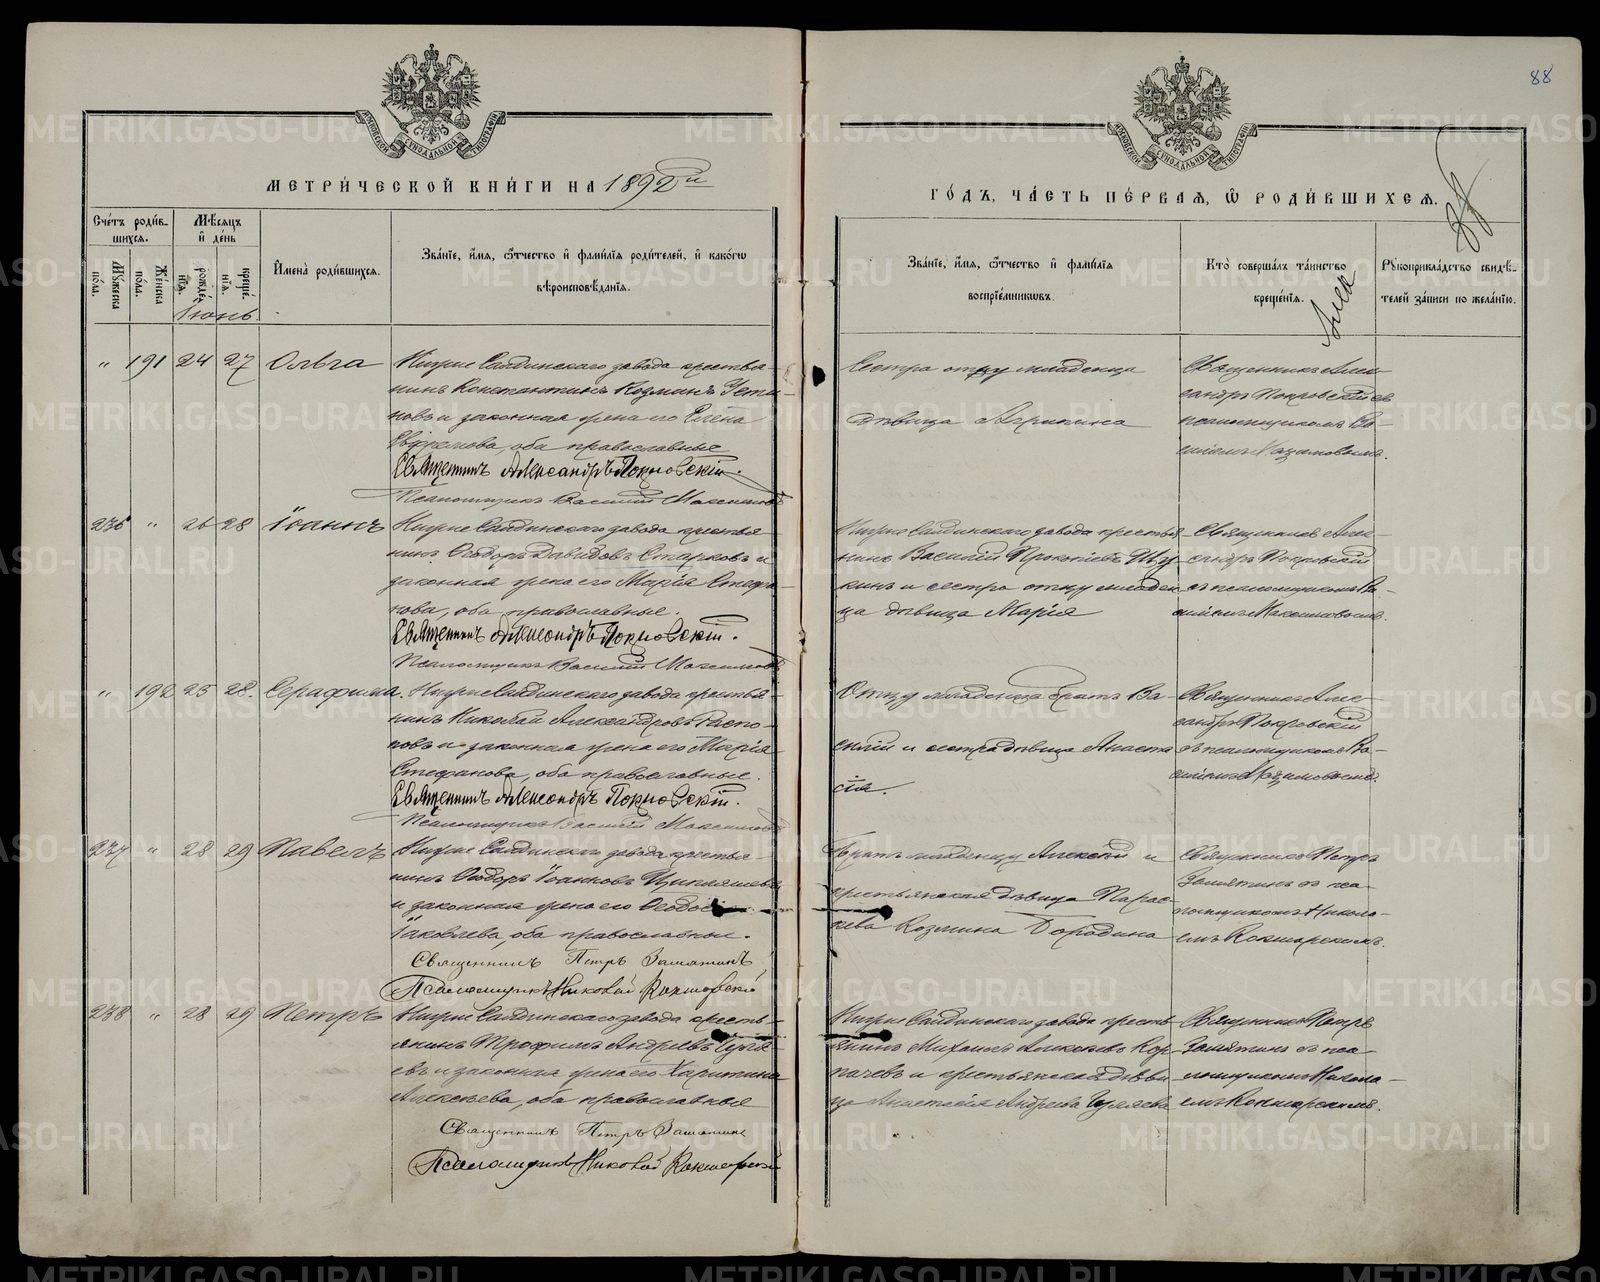 88
МЕТРИ́ЧЕСКОЙ КНИ́ГИ НА 1892й
ГО́ДЪ, ЧА́СТЬ ПЕ́РВАЯ, Ѡ҆ РОДИ́ВШИХСЯ.
Сче́тъ роди́в-
шихся.
Мужеска
по́ла.
Же́нска
по́ла.
Мѣ́сяцъ
и҆ де́нь
рожде́-
нїя.
креще́-
нїя.
Имена̀ роди́вшихся.
Зва́нїе, и҆́мя, ѻ҆́тчество и҆ фами́лїя роди́телей, и҆ како́гѡ
вѣроисповѣ́данїя.
Зва́нїе, и҆́мя, ѻ҆́тчество и҆ фами́лїя
воспрїе́мниковъ.
Кто̀ соверша́лъ та́инство
креще́нїя.
Рукоприкла́дство свидѣ́-
телей за́писи по жела́нїю.
Іюнь.
" 191 24 27 Ольга
Нижне Салдинскаго завода крестья-
нинъ Константинъ Козминъ Усти-
новъ и законная жена его Елена
Ефремова, оба православные
Священникъ Александръ Покровскій.
Псаломщикъ Василій Максимовъ
Сестра отцу младенца
дѣвица Агрипина
Священникъ Алек-
сандръ Покровскій съ
псаломщикомъ Ва-
силіемъ
236 " 26 28 Іоаннъ
Нижне Салдинскаго завода крестья-
нинъ Ѳеодоръ Давидовъ Старковъ и
законная жена его Марія Стефа-
нова, оба православные.
Священникъ Александръ Покровскій.
Псаломщикъ Василій Максимовъ
Нижне Салдинскаго завода крестья-
нинъ Василій Прокопіевъ
кинъ и сестра отцу младен-
ца дѣвица Марія
Священникъ Алек-
сандръ Покровскій
съ псаломщикомъ Ва-
силіемъ Максимовымъ.
" 192 25 28. Серафима.
Нижне Салдинскаго завода крестья-
нинъ Николай Александровъ Распо-
повъ и законная жена его Марія
Стефанова, оба православные.
Священникъ Александръ Покровскій.
Псаломщикъ Василій Максимовъ
Отцу младенца братъ Ва-
силій и сестра дѣвица Анаста-
сія.
Священникъ Алек-
сандръ Покровскій
съ псаломщикомъ Ва-
силіемъ
237 " 28 29 Павелъ
Нижне Салдинскаго завода крестья-
нинъ Ѳеодоръ Іоанновъ
и законная жена его Ѳеодос
Іаковлева, оба православные.
Священникъ Петръ Замятинъ
Псаломщикъ Николай Кокшарскій
Братъ младенцу Алексій и
крестьянская дѣвица Парас-
кева Козмина Бородина
Священникъ Петръ
Замятинъ съ пса-
ломщикомъ Никола-
емъ Кокшарскимъ.
238 " 28 29 Петръ
Нижне Салдинскаго завода кресть-
янинъ Трофимъ Андреевъ Цуля-
евъ и законная жена его Харитина
Алексѣева, оба православные
Священникъ Петръ Замятинъ
Псаломщикъ Николай Кокшарскій
Нижне Салдинскаго завода кресть-
янинъ Михаилъ Алексѣевъ Кор-
пачевъ и крестьянская дѣви-
ца Анастасія Андреева Цуляева
Священникъ Петръ
Замятинъ съ пса-
ломщикомъ Никола-
емъ Кокшарскимъ.
METRIKI.GASO-URAL.RU